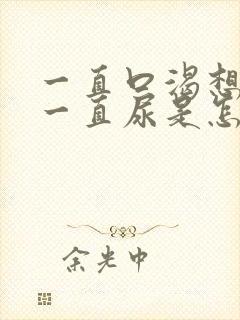 一直口渴想
一直尿是怎
余光中